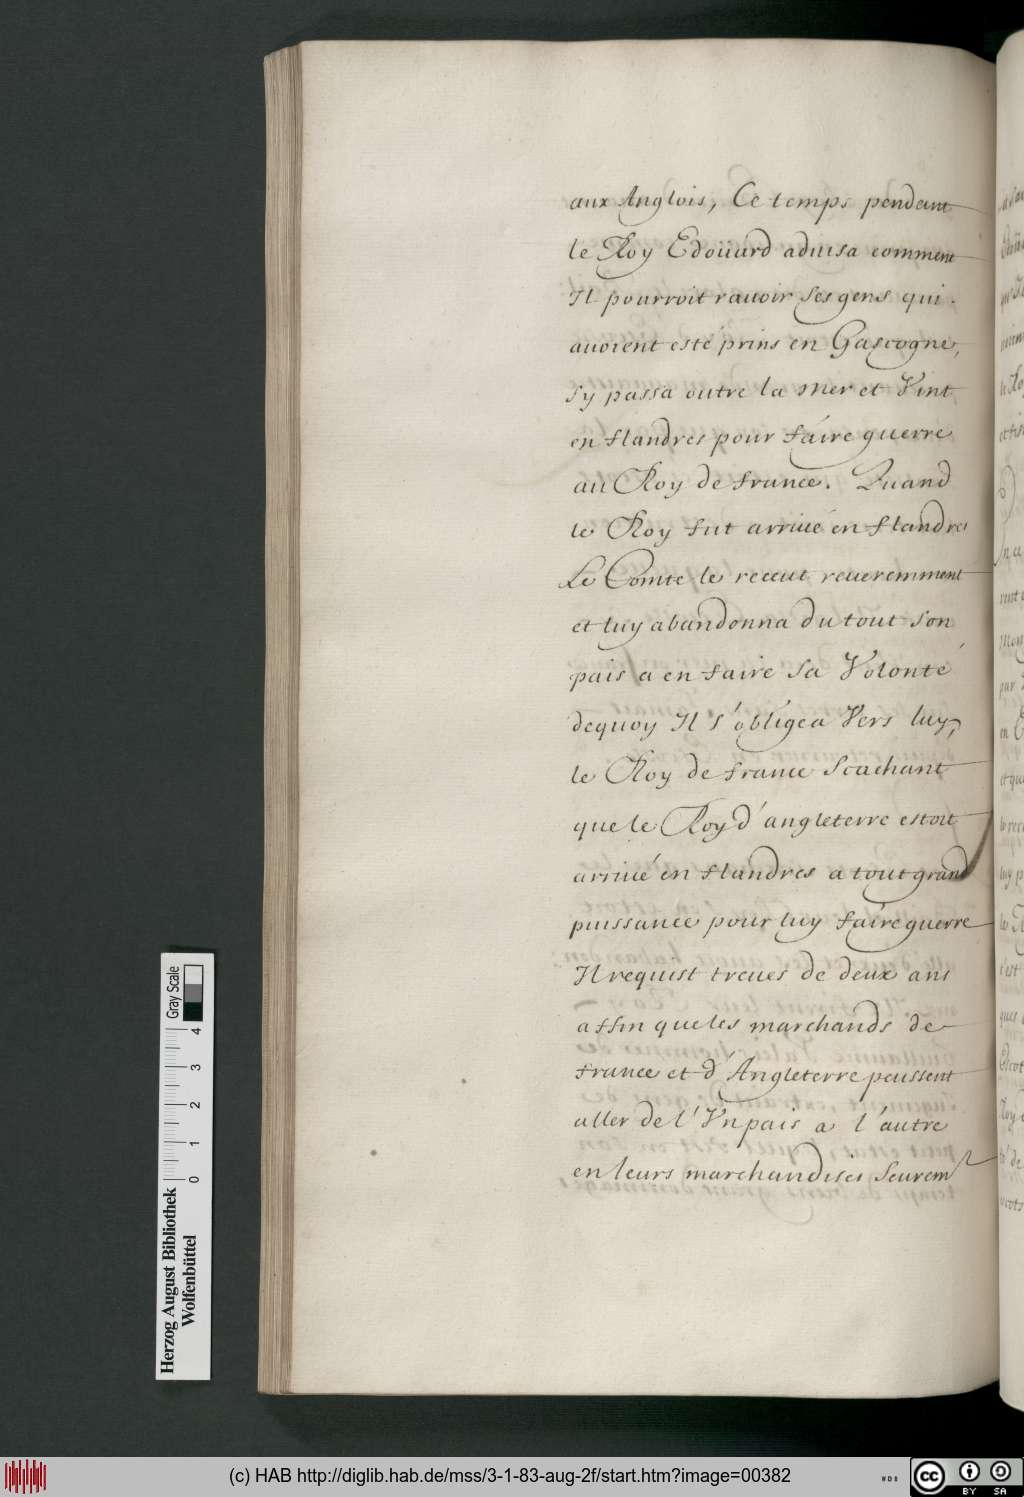 aux Anglois, Ce temps pendant
le Roy Edoüard aduisa comment
Il pourroit rauoir ses gens qui
auoient esté prins en Gascogne,
s'y passa outre la mer et Vint
en flandres pour faire guerre
au Roy de france. Quand
le Roy fut arriué en flandres
Le Comte le receut reueremment
et luy abandonna du tout son
pais a en faire sa Volonté
dequoy Il s'obligea Vers luy,
le Roy de france scachant
que le Roy d'angleterre estoit
arriué en flandres a tout grand
puissance pour luy faire guerre
Il requist treues de deux ans
affin que les marchands de
france et d'Angleterre peussent
aller de l'Vn pais a l'autre
en leurs marchandises seurem
Herzog August Bibliothek
Wolfenbüttel
0 1 2 3 4
Gray Scale
(c) HAB http://diglib.hab.de/mss/3-1-83-aug-2f/start.htm?image=00382
WDB
cc BY SA